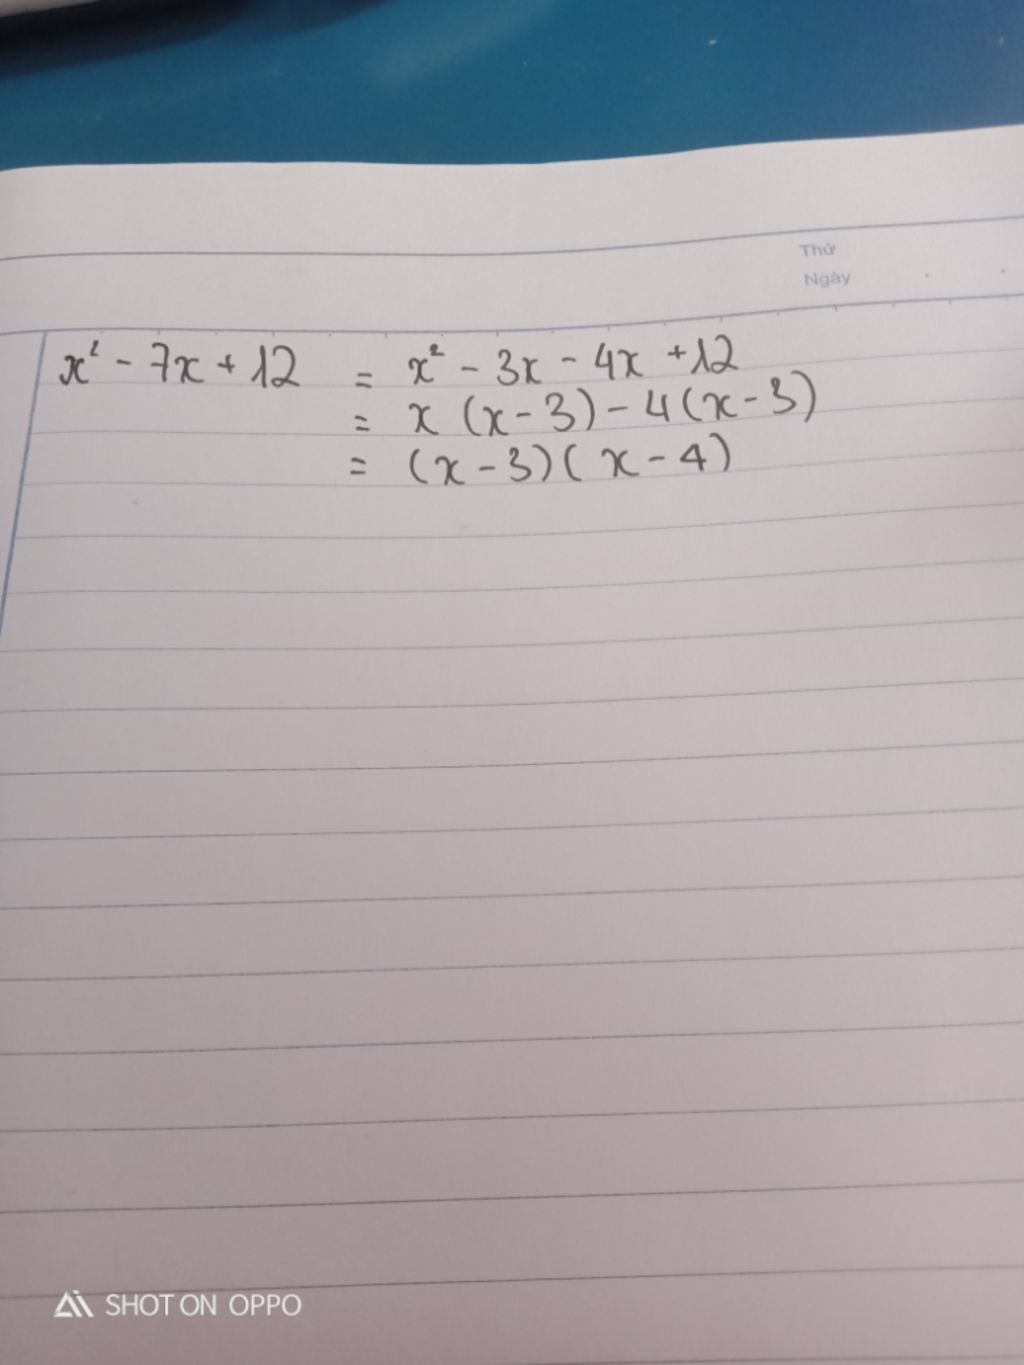 Thứ
Ngày
x² - 7x + 12 = x² - 3x - 4x + 12
= x (x - 3) - 4 (x - 3)
= (x - 3) ( x - 4)
SHOT ON OPPO